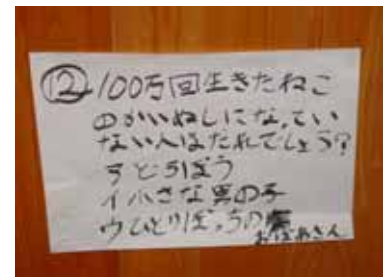 ⑫100万回生きたねこ
のかいぬしになってい
ない人はだれでしょう?
アどろぼう
イ小さな男の子
ウひとりぼっちの
おばあさん